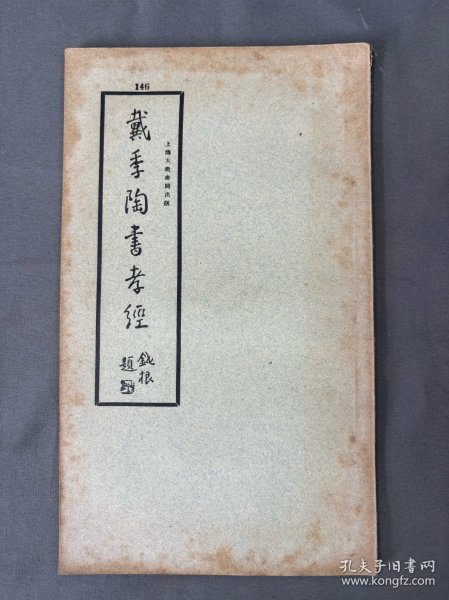 146
上海大衆書局出版
戴季陶書孝經
錢根
題
孔夫子旧书网
www.kongfz.com